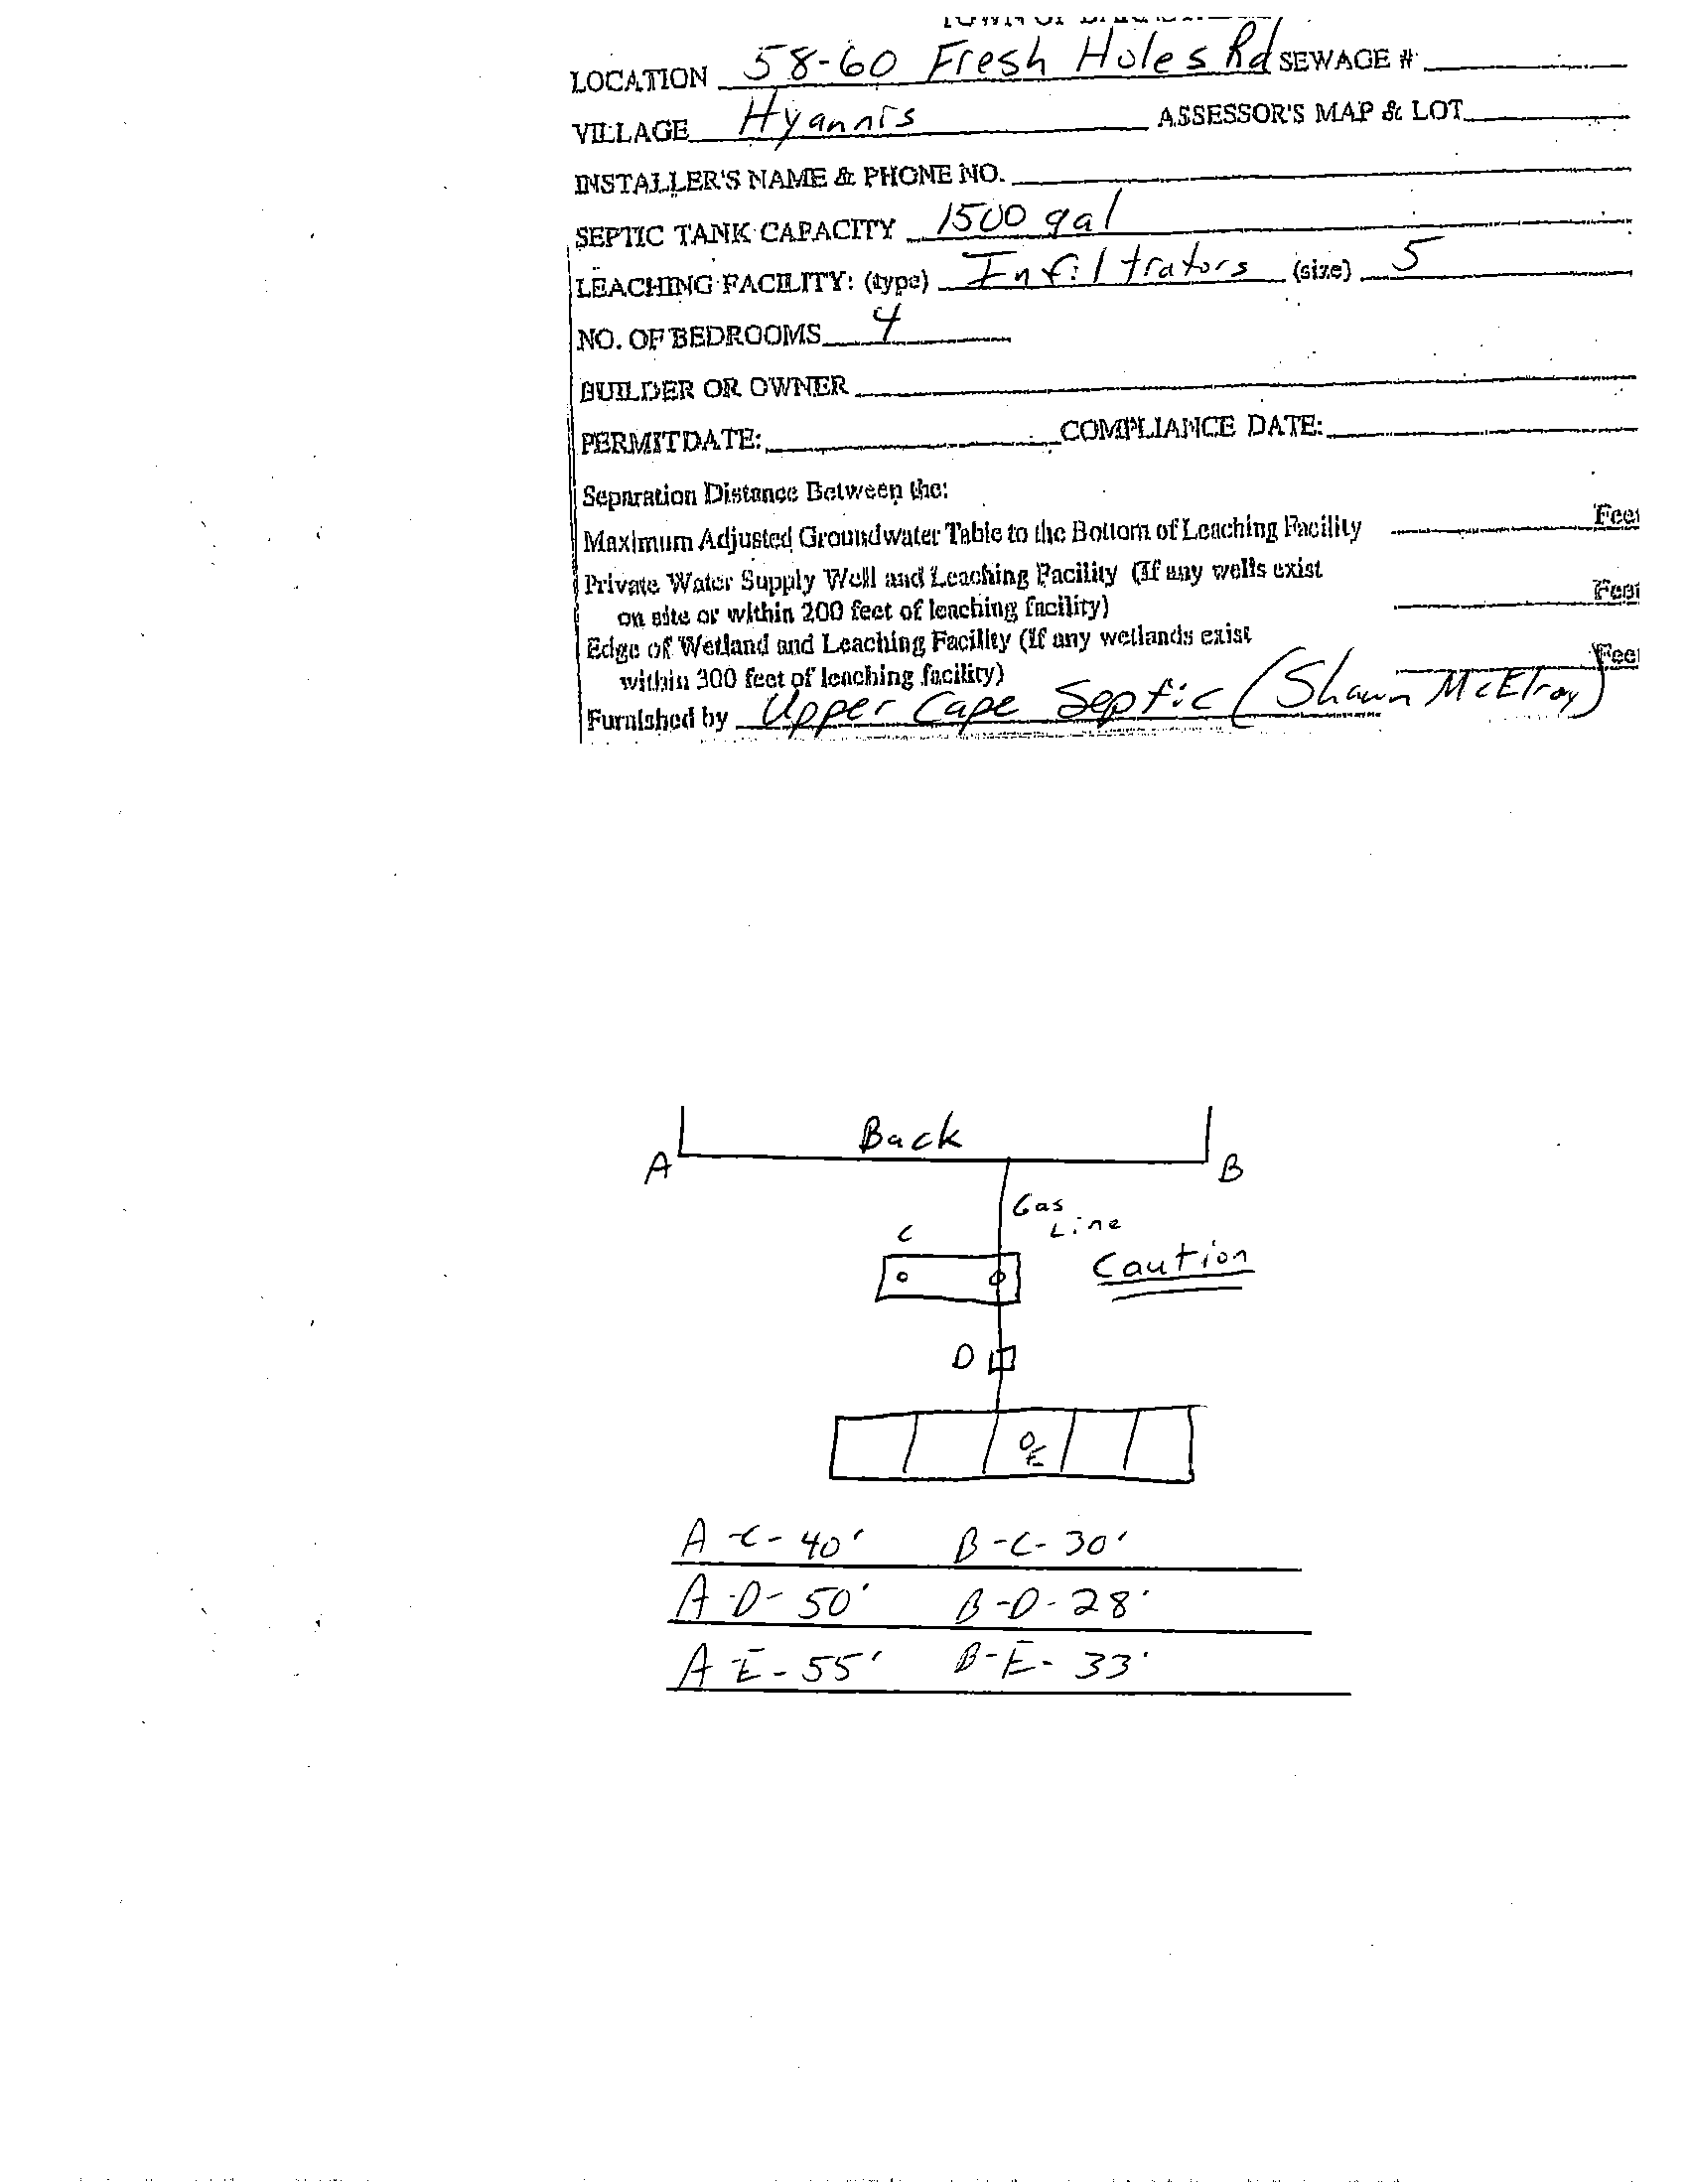 TOWN OF
LOCATION 58-60 Fresh Holes Rd SEWAGE #
VILLAGE Hyannis ASSESSOR'S MAP & LOT
INSTALLER'S NAME & PHONE NO.
SEPTIC TANK CAPACITY 1500 gal
LEACHING FACILITY: (type) Infiltrators (size) 5
NO. OF BEDROOMS 4
BUILDER OR OWNER
PERMITDATE: COMPLIANCE DATE:
Separation Distance Between the:
Maximum Adjusted Groundwater Table to the Bottom of Leaching Facility Feet
Private Water Supply Well and Leaching Facility (If any wells exist
on site or within 200 feet of leaching facility) Feet
Edge of Wetland and Leaching Facility (If any wetlands exist
within 300 feet of leaching facility) Feet
Furnished by Upper Cape Septic (Shawn McElroy)
Back
A B
Gas
Line
C
Caution
D
E
A-C-40' B-C-30'
A-D-50' B-D-28'
A E-55' B-E-33'